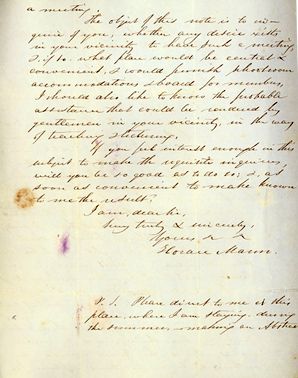 a meeting.
The object of this note is to in-
quire of you, whether any desire exists
in your vicinity to have such a meeting
& if so. what place would be central &
convenient, & would furnish
accommodations & board for members,
I should also like to know the probable
assistance that could be rendered by
gentlemen in your vicinity, in the way
of teaching & lecturing,
If you feel interest enough in this
subject to make the requisite inquiries,
will you be so good as to do so; & as
soon as convenient to make known
to me the result?
I am, dear sir,
Very truly & sincerely,
Yours,
Horace Mann.
P. S. Please direct to me at this
place, where I am staying during
the summer—making an Abstract